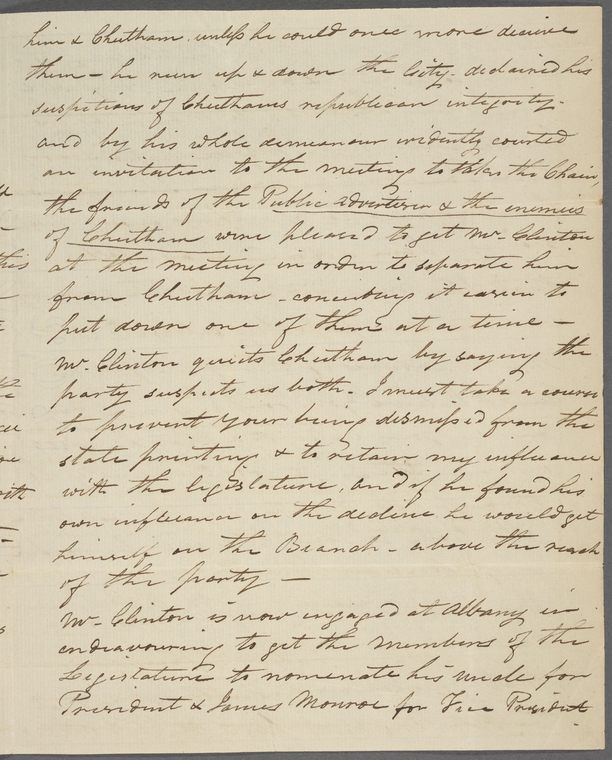 him & Cheetham. unless he could once more deceive
them — he run up & down the City. declained his
suspitions of Cheethams republican integrity.
and by his whole demeanour evidently courted
an invitation to the meeting to take the Chair,
the friends of the Public advertiser & the enemies
of Cheetham were pleased to get Mr. Clinton
at the meeting in order to separate him
from Cheetham - conceiving it easier to
put down one of them at a time —
Mr. Clinton quiets Cheetham by saying the
party suspects us both. I must take a course
to prevent your being dismissed from the
state printing & to retain my influence
with the legislature, and if he found his
own influence on the decline he would get
himself on the Beanch - above the reach
of the party —
Mr. Clinton is now engaged at Albany in
endeavouring to get the members of the
Legislature to nomenate his uncle for
President & James Monroe for Vice President